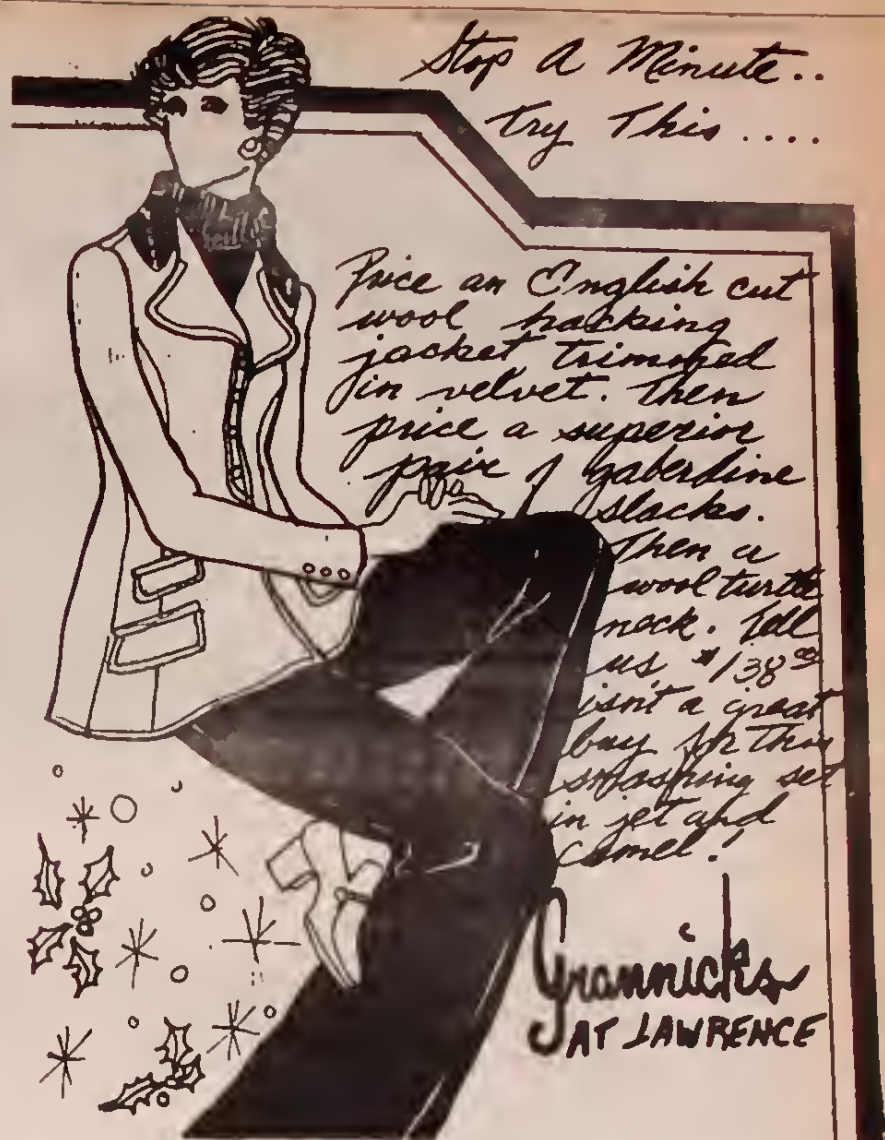 Stop A Minute..
try This ....
Price an English cut
wool hacking
jacket trimmed
in velvet. Then
price a superior
pair of gaberdine
slacks.
Then a
wool turtle
neck. Tell
us $138.00
isn't a great
buy for this
smashing set
in jet and
camel!
Grannicks
AT LAWRENCE